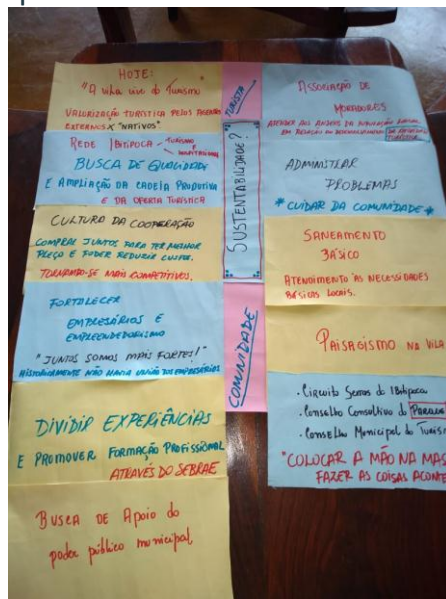 HOJE:
"A vila vive do Turismo"
VALORIZAÇÃO TURÍSTICA PELOS AGENTES
EXTERNOS X "NATIVOS"
REDE IBITIPOCA
TURISMO
BUSCA DE QUALIDADE
E AMPLIAÇÃO DA CADEIA PRODUTIVA
E DA OFERTA TURÍSTICA
CULTURA DA COOPERAÇÃO
COMPRAR JUNTOS PARA TER MELHOR
PREÇO E PODER REDUZIR CUSTOS.
TORNANDO-SE MAIS COMPETITIVOS.
FORTALECER
EMPRESÁRIOS E
EMPREENDEDORISMO
"JUNTOS SOMOS MAIS FORTES!"
HISTORICAMENTE NÃO HAVIA UNIÃO DOS EMPRESÁRIOS
DIVIDIR EXPERIÊNCIAS
E PROMOVER FORMAÇÃO PROFISSIONAL
ATRAVÉS DO SEBRAE
BUSCA DE Apoio do
poder público municipal
TURISTA
SUSTENTABILIDADE?
COMUNIDADE
ASSOCIAÇÃO DE
MORADORES
ATENDER AOS ANSEIOS DA POPULAÇÃO
EM RELAÇÃO AO DESENVOLVIMENTO
ADMINISTRAR
PROBLEMAS
* CUIDAR DA COMUNIDADE *
SANEAMENTO
BÁSICO
ATENDIMENTO ÀS NECESSIDADES
BÁSICAS LOCAIS.
PAISAGISMO NA VILA
. Circuito Serras do Ibitipoca
. Conselho Consultivo do PARQUE
. Conselho Municipal do Turis
"COLOCAR A MÃO NA MAS
FAZER AS COISAS ACONTE